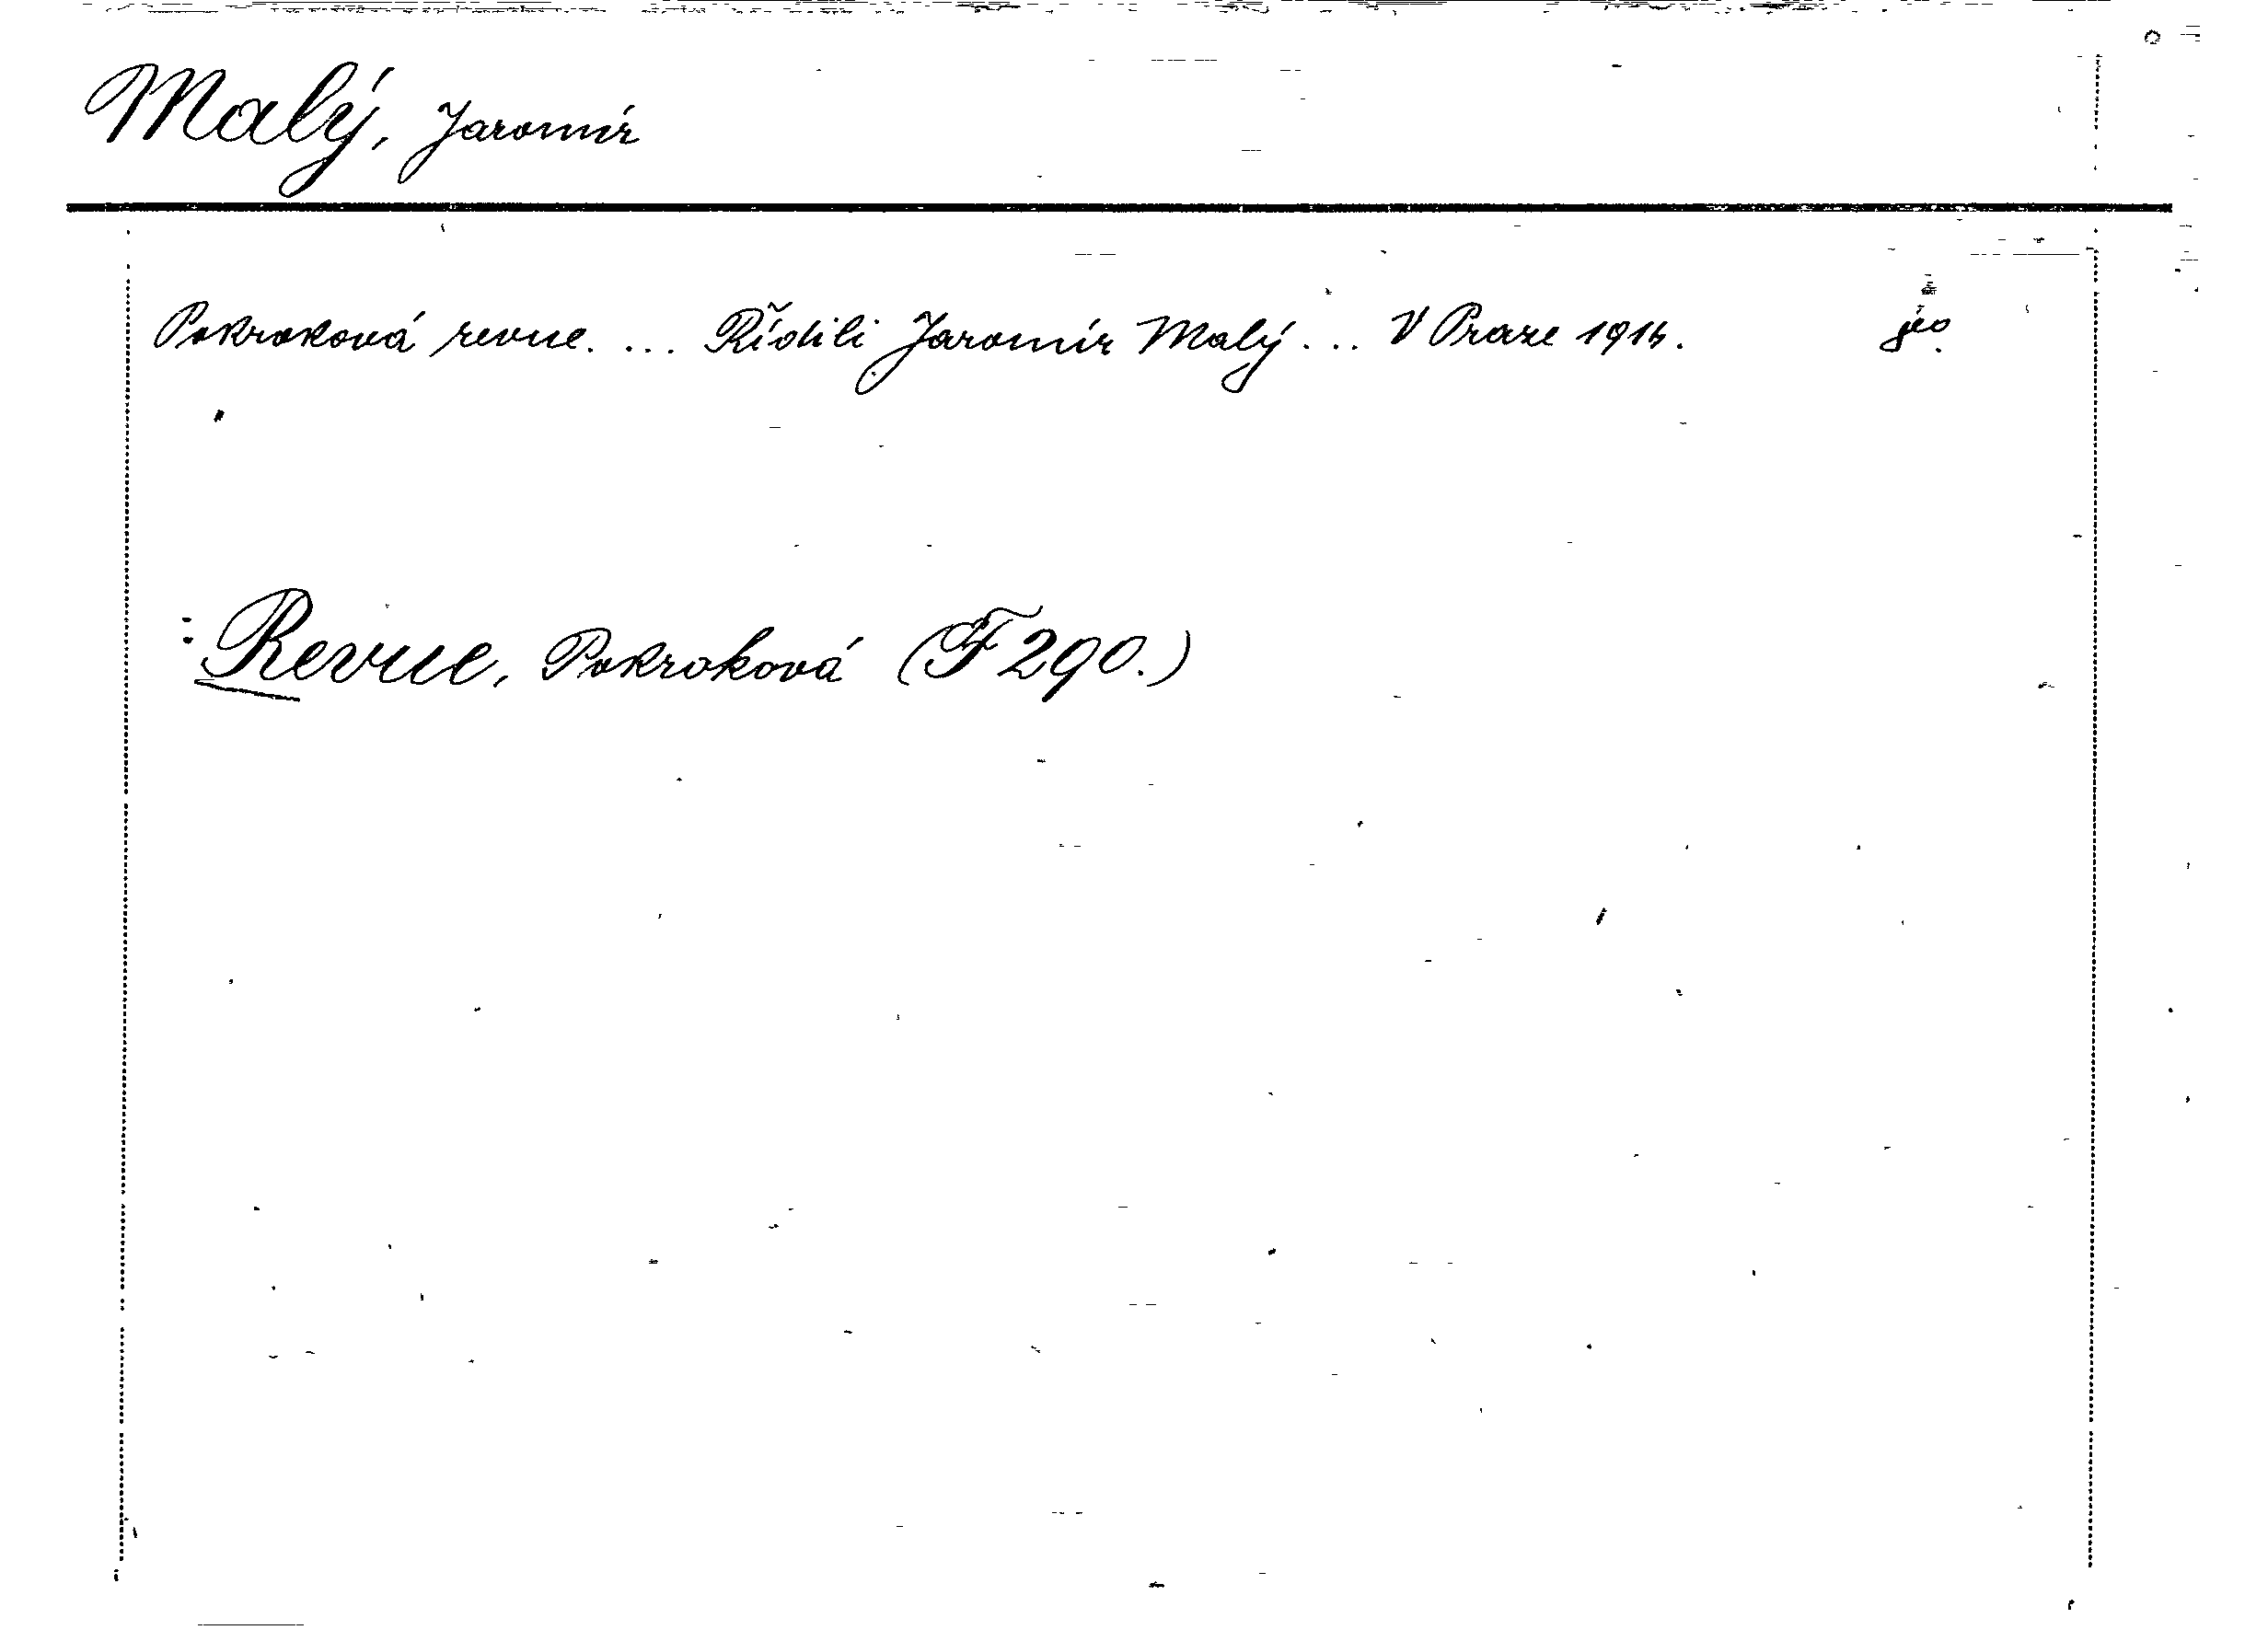 Malý, Jaromír
Pokroková revue. ... Řídili Jaromír Malý ... V Praze
: Revue, Pokroková (F 290.)